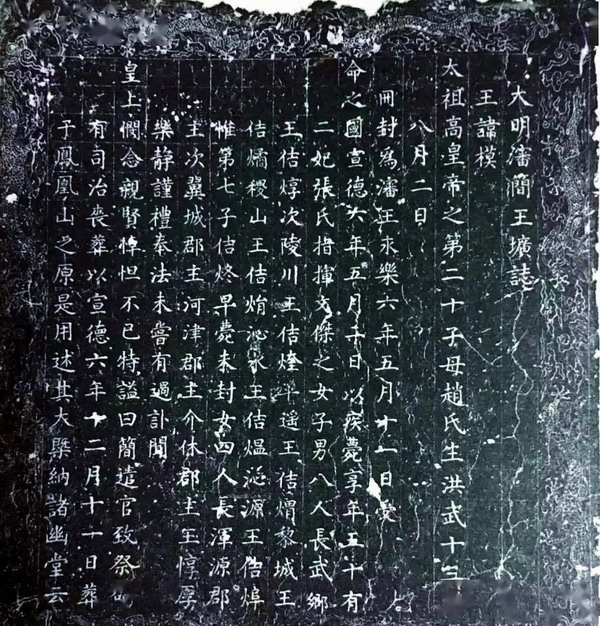 大明瀋簡王壙誌
王諱模
太祖高皇帝之第二十子母趙氏生洪武十三
八月二日
冊封為瀋王永樂六年五月十一日受
命之國宣德六年五月日以疾薨享年五十有
二妃張氏指揮文傑之女子男八人長武鄉
王佶焞次陵川王佶煃平遥王佶煟黎城王
佶燏稷山王佶焇沁水王佶熅沁源王佶
惟第七子佶早薨未封女四人長渾源郡
主次翼城郡主河津郡主介休郡主王惇厚
樂静謹禮奉法未嘗有過訃聞
皇上憫念親賢悼怛不已特謚曰簡遣官致祭
有司治喪葬以宣德六年十二月十一日葬
于鳳凰山之原是用述其大槩納諸幽堂云